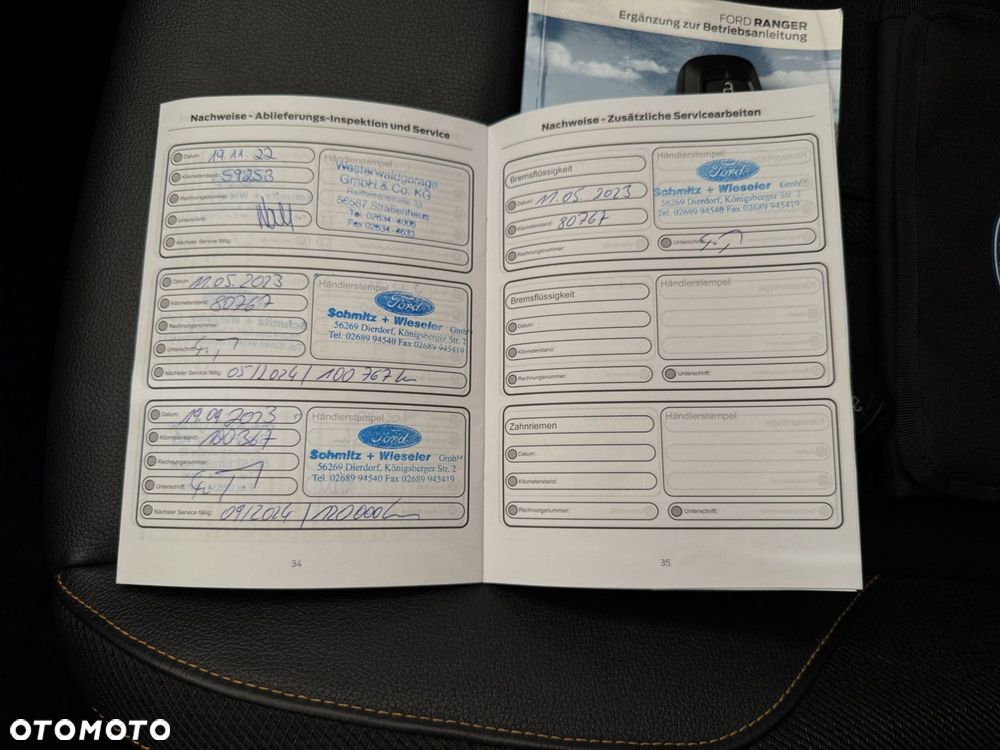 FORD RANGER
Ergänzung zur Betriebsanleitung
Nachweise - Ablieferungs-Inspektion und Service
Datum: 19.11.22
Kilometerstand: 59253
Rechnungsnummer:
Unterschrift:
Nächster Service fällig:
Händlerstempel
Westerwaldgarage
GmbH & Co. KG
56587 Straßenhaus
Tel. 02634-4006
Fax 02634-4633
Datum: 11.05.2023
Kilometerstand: 80767
Rechnungsnummer:
Unterschrift:
Nächster Service fällig: 05/2024 / 100 767 km
Händlerstempel
Ford
Schmitz + Wieseler GmbH
56269 Dierdorf, Königsberger Str. 2
Tel. 02689 94540 Fax 02689 945419
Datum: 19.09.2023
Kilometerstand: 100367
Rechnungsnummer:
Unterschrift:
Nächster Service fällig: 09/2024 / 120000 km
Händlerstempel
Ford
Schmitz + Wieseler GmbH
56269 Dierdorf, Königsberger Str. 2
Tel. 02689 94540 Fax 02689 945419
34
Nachweise - Zusätzliche Servicearbeiten
Bremsflüssigkeit
Datum: 11.05.2023
Kilometerstand: 80767
Rechnungsnummer:
Händlerstempel
Ford
Schmitz + Wieseler GmbH
56269 Dierdorf, Königsberger Str. 2
Tel. 02689 94540 Fax 02689 945419
Unterschrift:
Bremsflüssigkeit
Datum:
Kilometerstand:
Rechnungsnummer:
Händlerstempel
Unterschrift:
Zahnriemen
Datum:
Kilometerstand:
Rechnungsnummer:
Händlerstempel
Unterschrift:
35
OTOMOTO